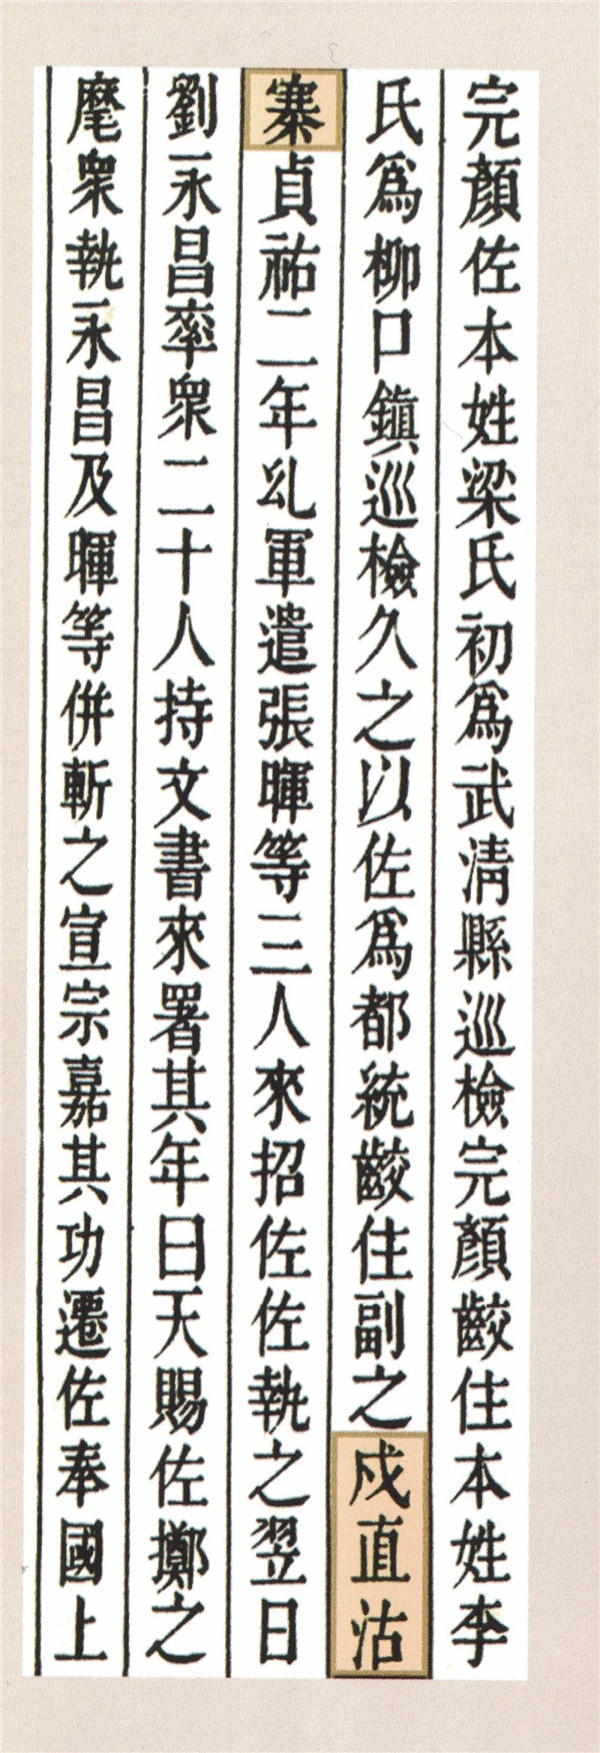 完顏佐本姓梁氏初爲武淸縣巡檢完顏齩住本姓李
氏爲柳口鎮巡檢久之以佐爲都統齩住副之戍直沽
寨貞祐二年乣軍遣張暉等三人來招佐佐執之翌日
劉永昌率衆二十人持文書來署其年曰天賜佐擲之
麾衆執永昌及暉等併斬之宣宗嘉其功遷佐奉國上